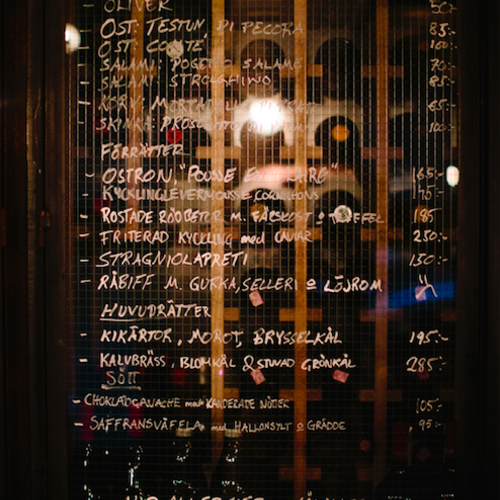 - OLIVER 50:-
- OST: TESTUN DI PECORA 85:-
- OST: COMTÉ 100:-
- SALAMI: POGETTO SALAME 70:-
- SALAMI: STROLGHINO 85:-
- KORV: 65:-
- SKINKA: 100:-
FÖRRÄTTER
- OSTRON, "POUSSE EN CLAIRE" 165:-
- KYCKLINGLEVERMOUSSE, CORNICHONS 145:-
- ROSTADE RÖDBETOR M. FÄRSKOST O TRYFFEL 185
- FRITERAD KYCKLING med CAVIAR 250:-
- STRAGNIOLAPRETI 150:-
- RÅBIFF M. GURKA, SELLERI O LÖJROM
HUVUDRÄTTER
- KIKÄRTOR, MOROT, BRYSSELKÅL 195:-
- KALVBRÄSS, BLOMKÅL & STUVAD GRÖNKÅL 285:-
SÖTT
- CHOKLADGANACHE med KANDERADE NÖTTER 105:-
- SAFFRANSVÅFFLA med HALLONSYLT O GRÄDDE 95:-